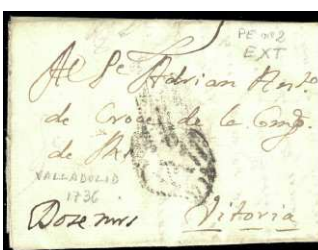 PE nº 2
EXT
Al Pe Adrian Anto
de Croce de la Comp.
de
VALLADOLID
1736
Vitoria